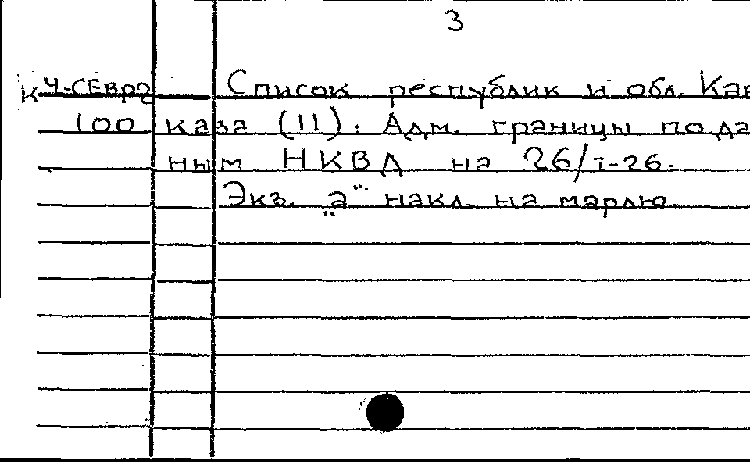 3
К Ч-СЕвр2 Список республик и обл. Кав
100 каза (11). Адм. границы по да
ным НКВД на 26/I-26.
Экз. „а" накл. на марлю.